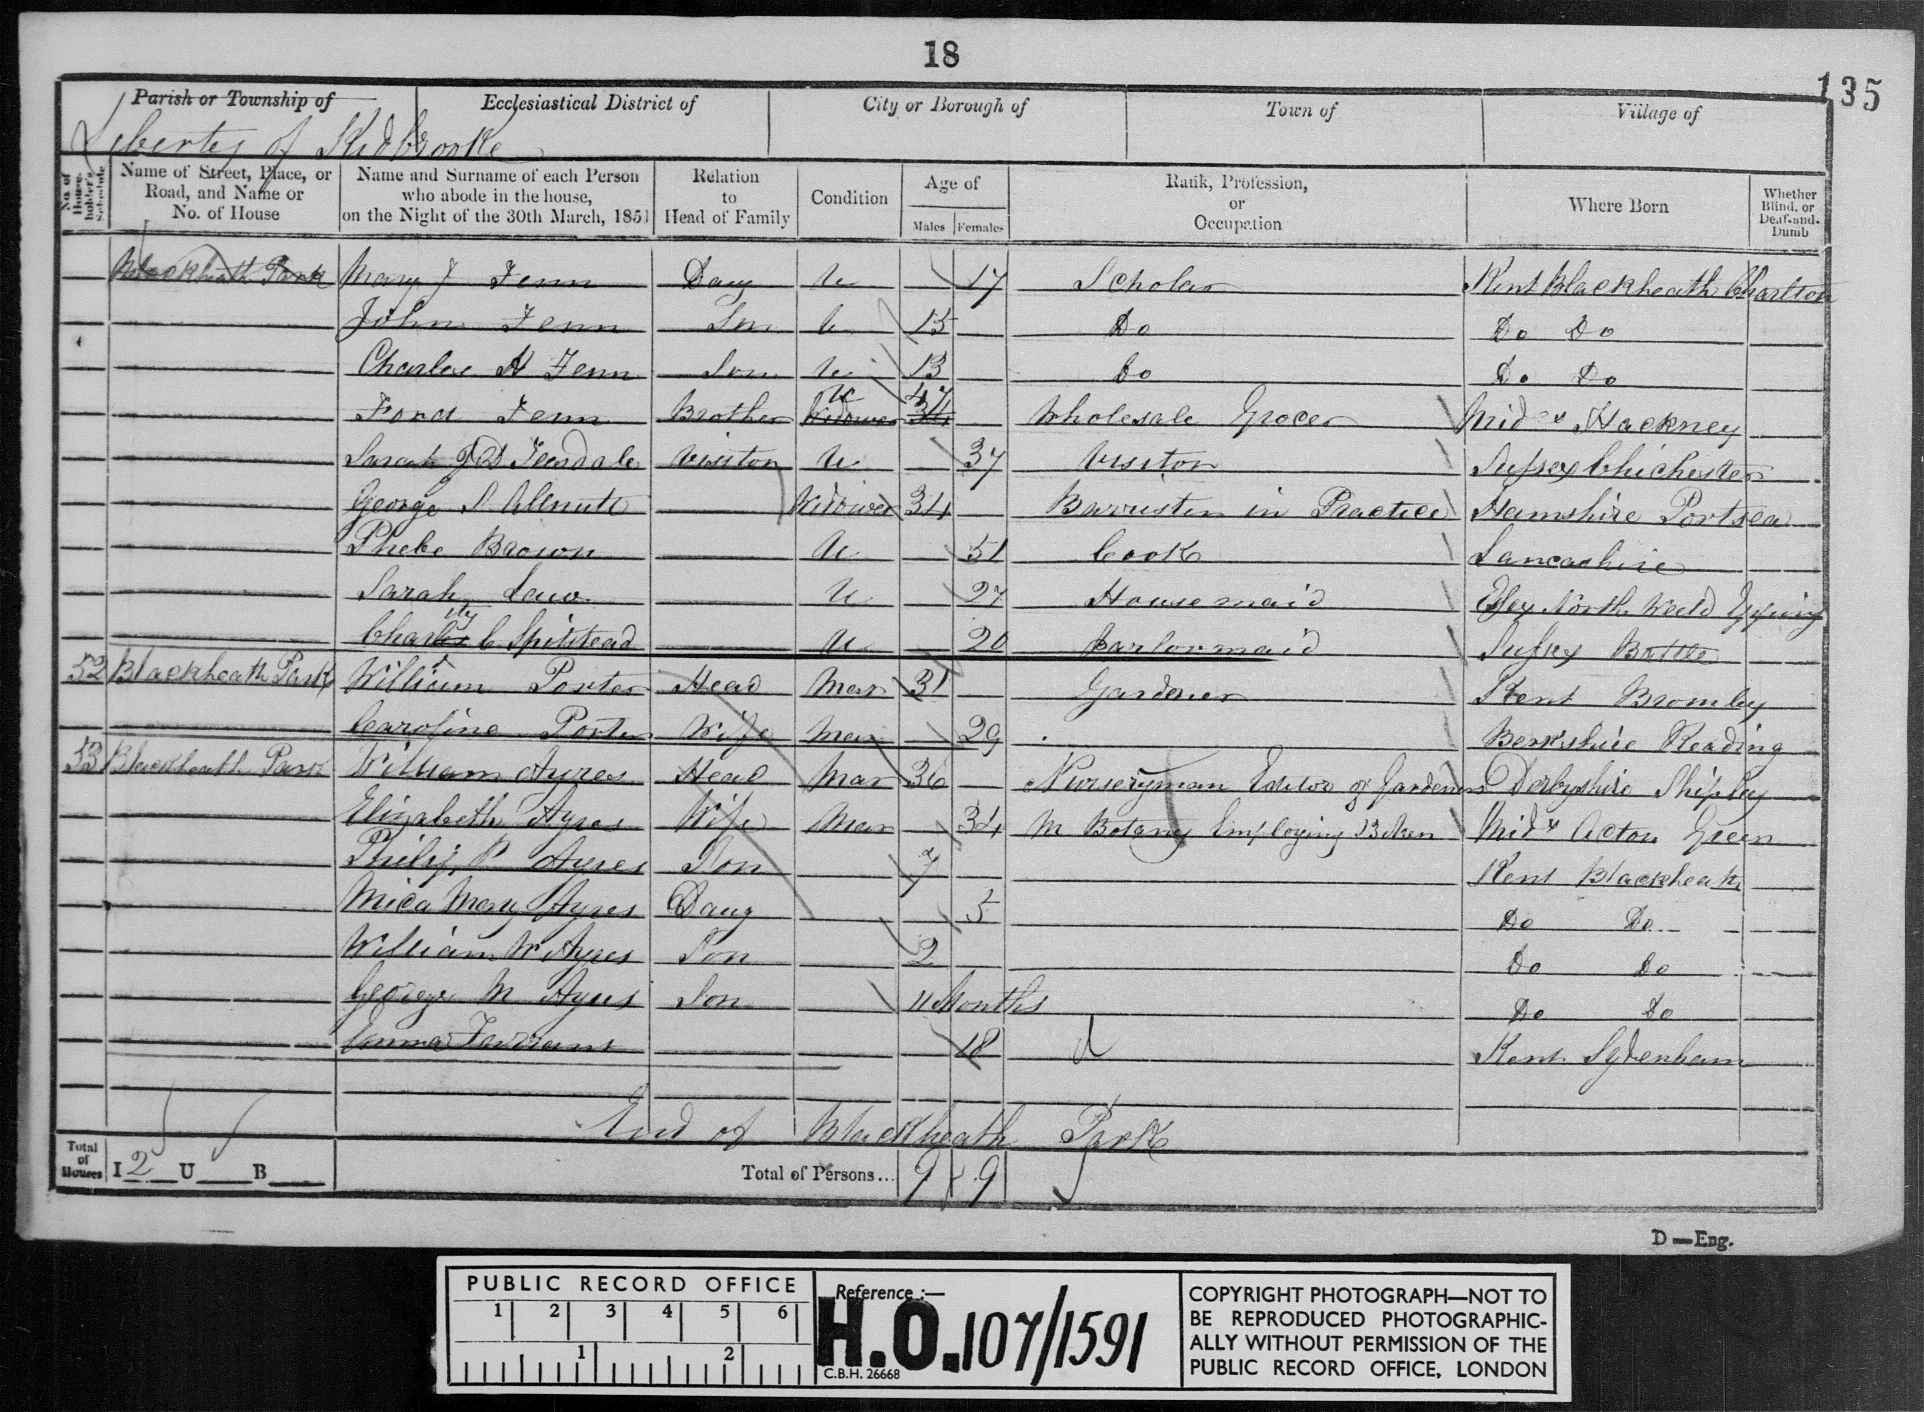 18
135
Parish or Township of Ecclesiastical District of City or Borough of Town of Village of
Liberty of Kidbrooke
No. of House-holder's Schedule Name of Street, Place, or Road, and Name or No. of House Name and Surname of each Person who abode in the house, on the Night of the 30th March, 1851 Relation to Head of Family Condition Age of Males Females Rank, Profession, or Occupation Where Born Whether Blind, or Deaf-and-Dumb
Blackheath Park Mary J Fenn Daug U 17 Scholar Kent Blackheath Charlton
John Fenn Son U 15 Do Do Do
Charles H Fenn Son U 13 Do Do Do
Ford Fenn Brother Widower U 34 47 Wholesale Grocer Midx Hackney
Sarah Teesdale Visitor U 37 Visitor Sussex Chichester
George S Allnutt Widower 34 Barrister in Practice Hamshire Portsea
Phebe Brown U 51 Cook Lancashire
Sarah U 27 Housemaid Essex North Weald Epping
C Spilstead U 20 Parlormaid Sussex Battle
52 Blackheath Park William Porter Head Mar 31 Gardener Kent Bromley
Caroline Porter Wife Mar 29 Berkshire Reading
53 Blackheath Park William Ayres Head Mar 36 Nurseryman Editor of Gardeners Derbyshire Shipley
Elizabeth Ayres Wife Mar 34 M Botany Employing 13 Men Midx Acton Green
Philip P Ayres Son 7 Kent Blackheath
Mary Ayres Daug 5 Do Do
William W Ayres Son 2 Do Do
George M Ayres Son 11 Months Do Do
Emma 18 Kent Sydenham
End of Blackheath Park
Total of Houses I 2 U B Total of Persons... 9 9
D—Eng.
PUBLIC RECORD OFFICE
1 2 3 4 5 6
1 2
Reference :—
H.O. 107/1591
C.B.H. 26668
COPYRIGHT PHOTOGRAPH—NOT TO
BE REPRODUCED PHOTOGRAPHIC-
ALLY WITHOUT PERMISSION OF THE
PUBLIC RECORD OFFICE, LONDON